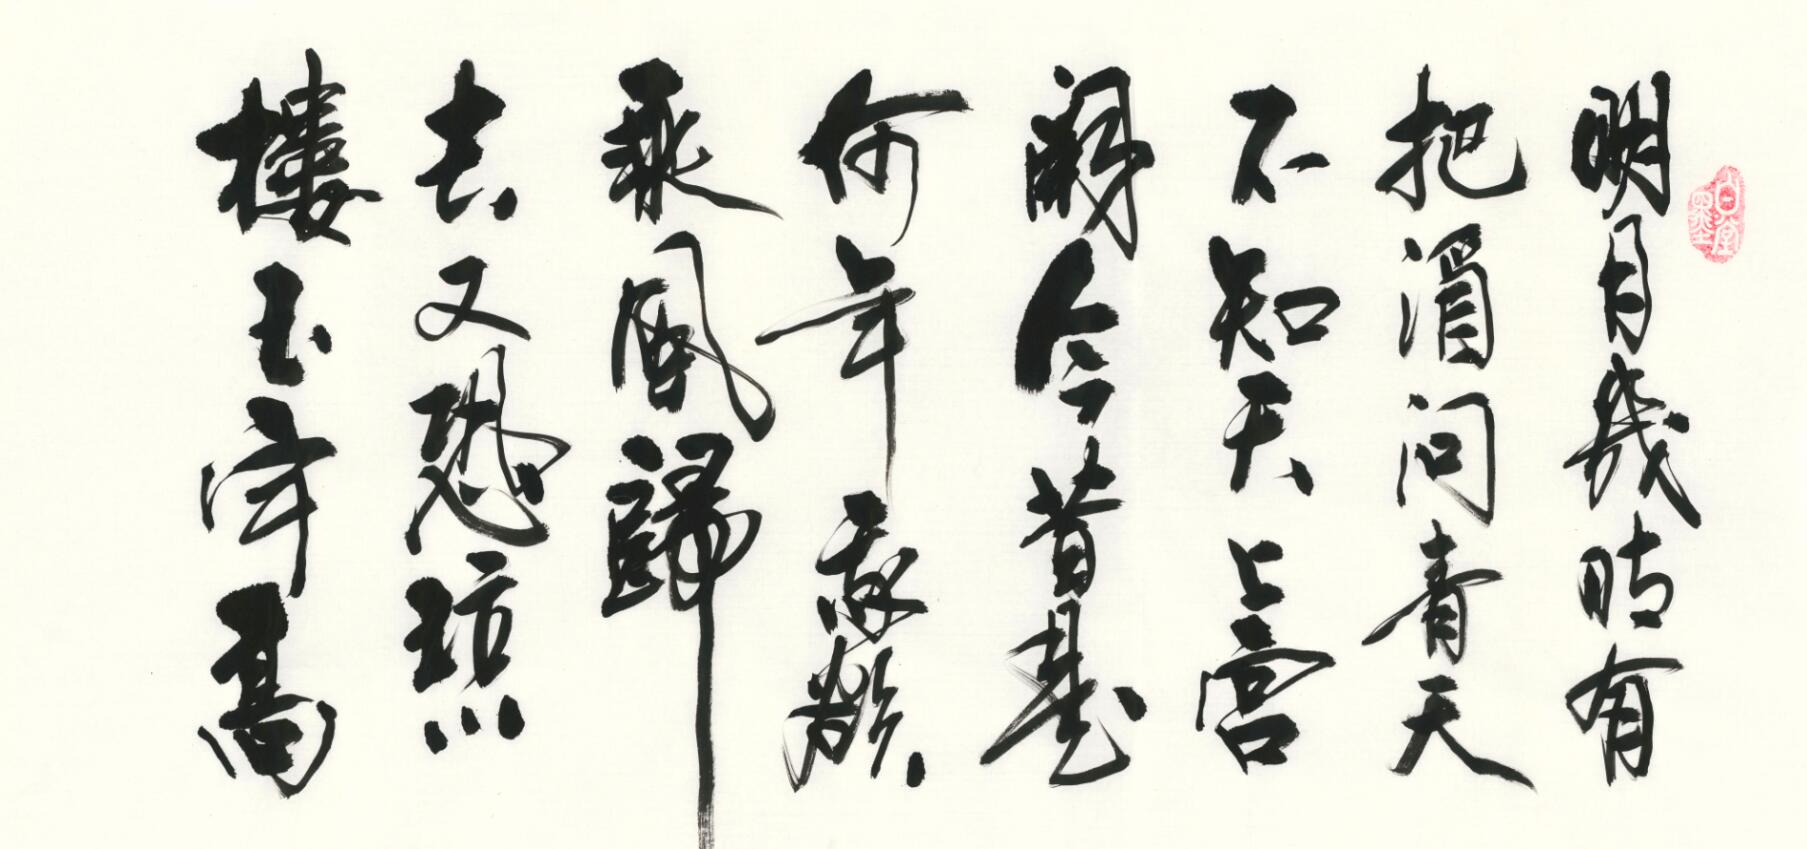 明月幾時有
把酒問青天
不知天上宮
闕今昔是
何年我欲
乘風歸
去又恐瓊
樓玉宇高